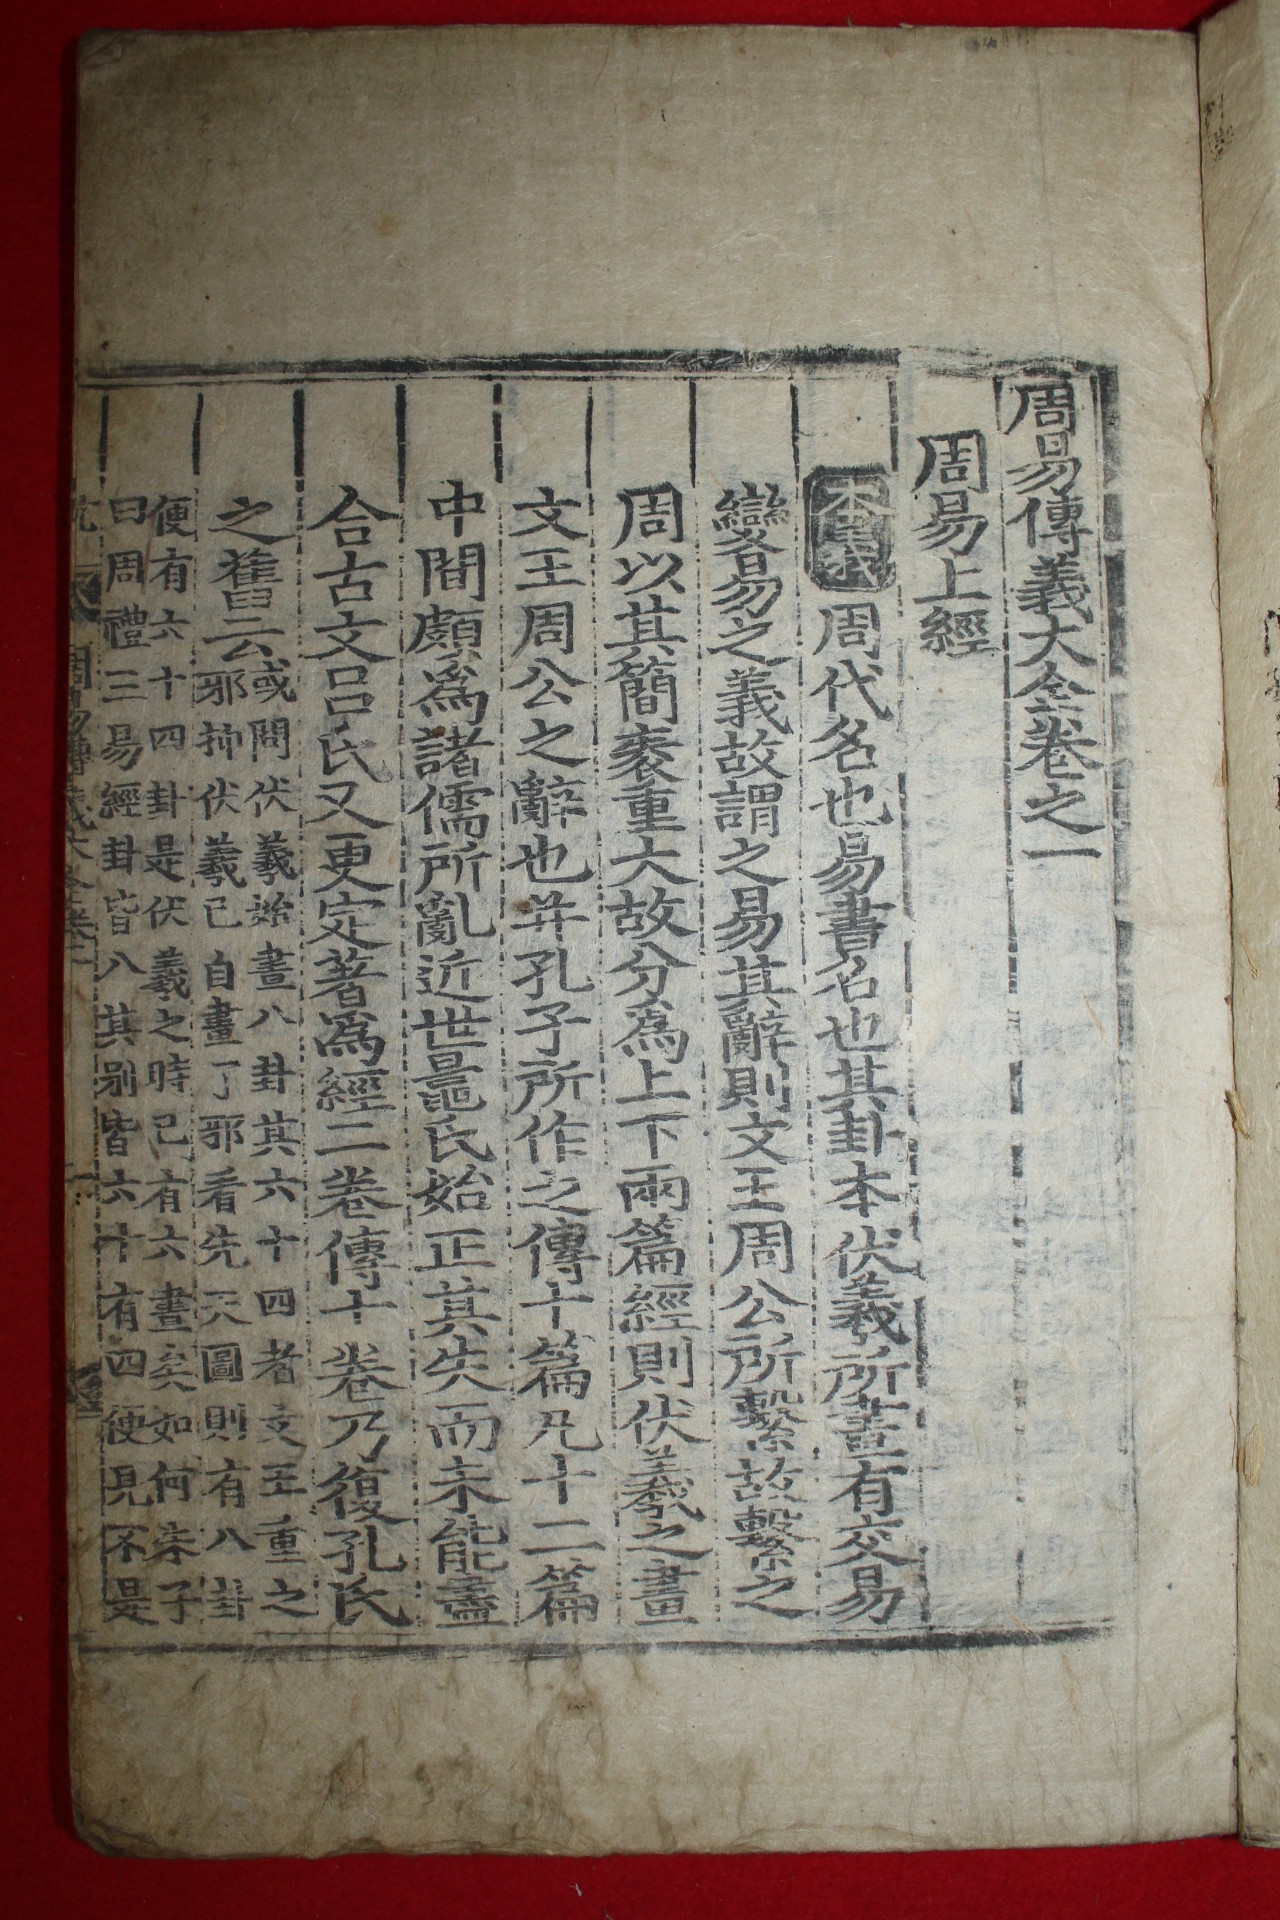 周易傳義大全卷之一
周易上經
本義 周代名也易書名也其卦本伏羲所畫有交易
變易之義故謂之易其辭則文王周公所繫故繫之
周以其簡袠重大故分爲上下兩篇經則伏羲之畫
文王周公之辭也并孔子所作之傳十篇凡十二篇
中間頗爲諸儒所亂近世鼂氏始正其失而未能盡
合古文呂氏又更定著爲經二卷傳十卷乃復孔氏
之舊云
或問伏羲始畫八卦其六十四者文王重之
邪抑伏羲已自畫了邪看先天圖則有八卦
便有六十四卦是伏羲之時已有六畫矣如何朱子
曰周禮三易經卦皆八其別皆六十有四便見不是
周易傳義大全卷一